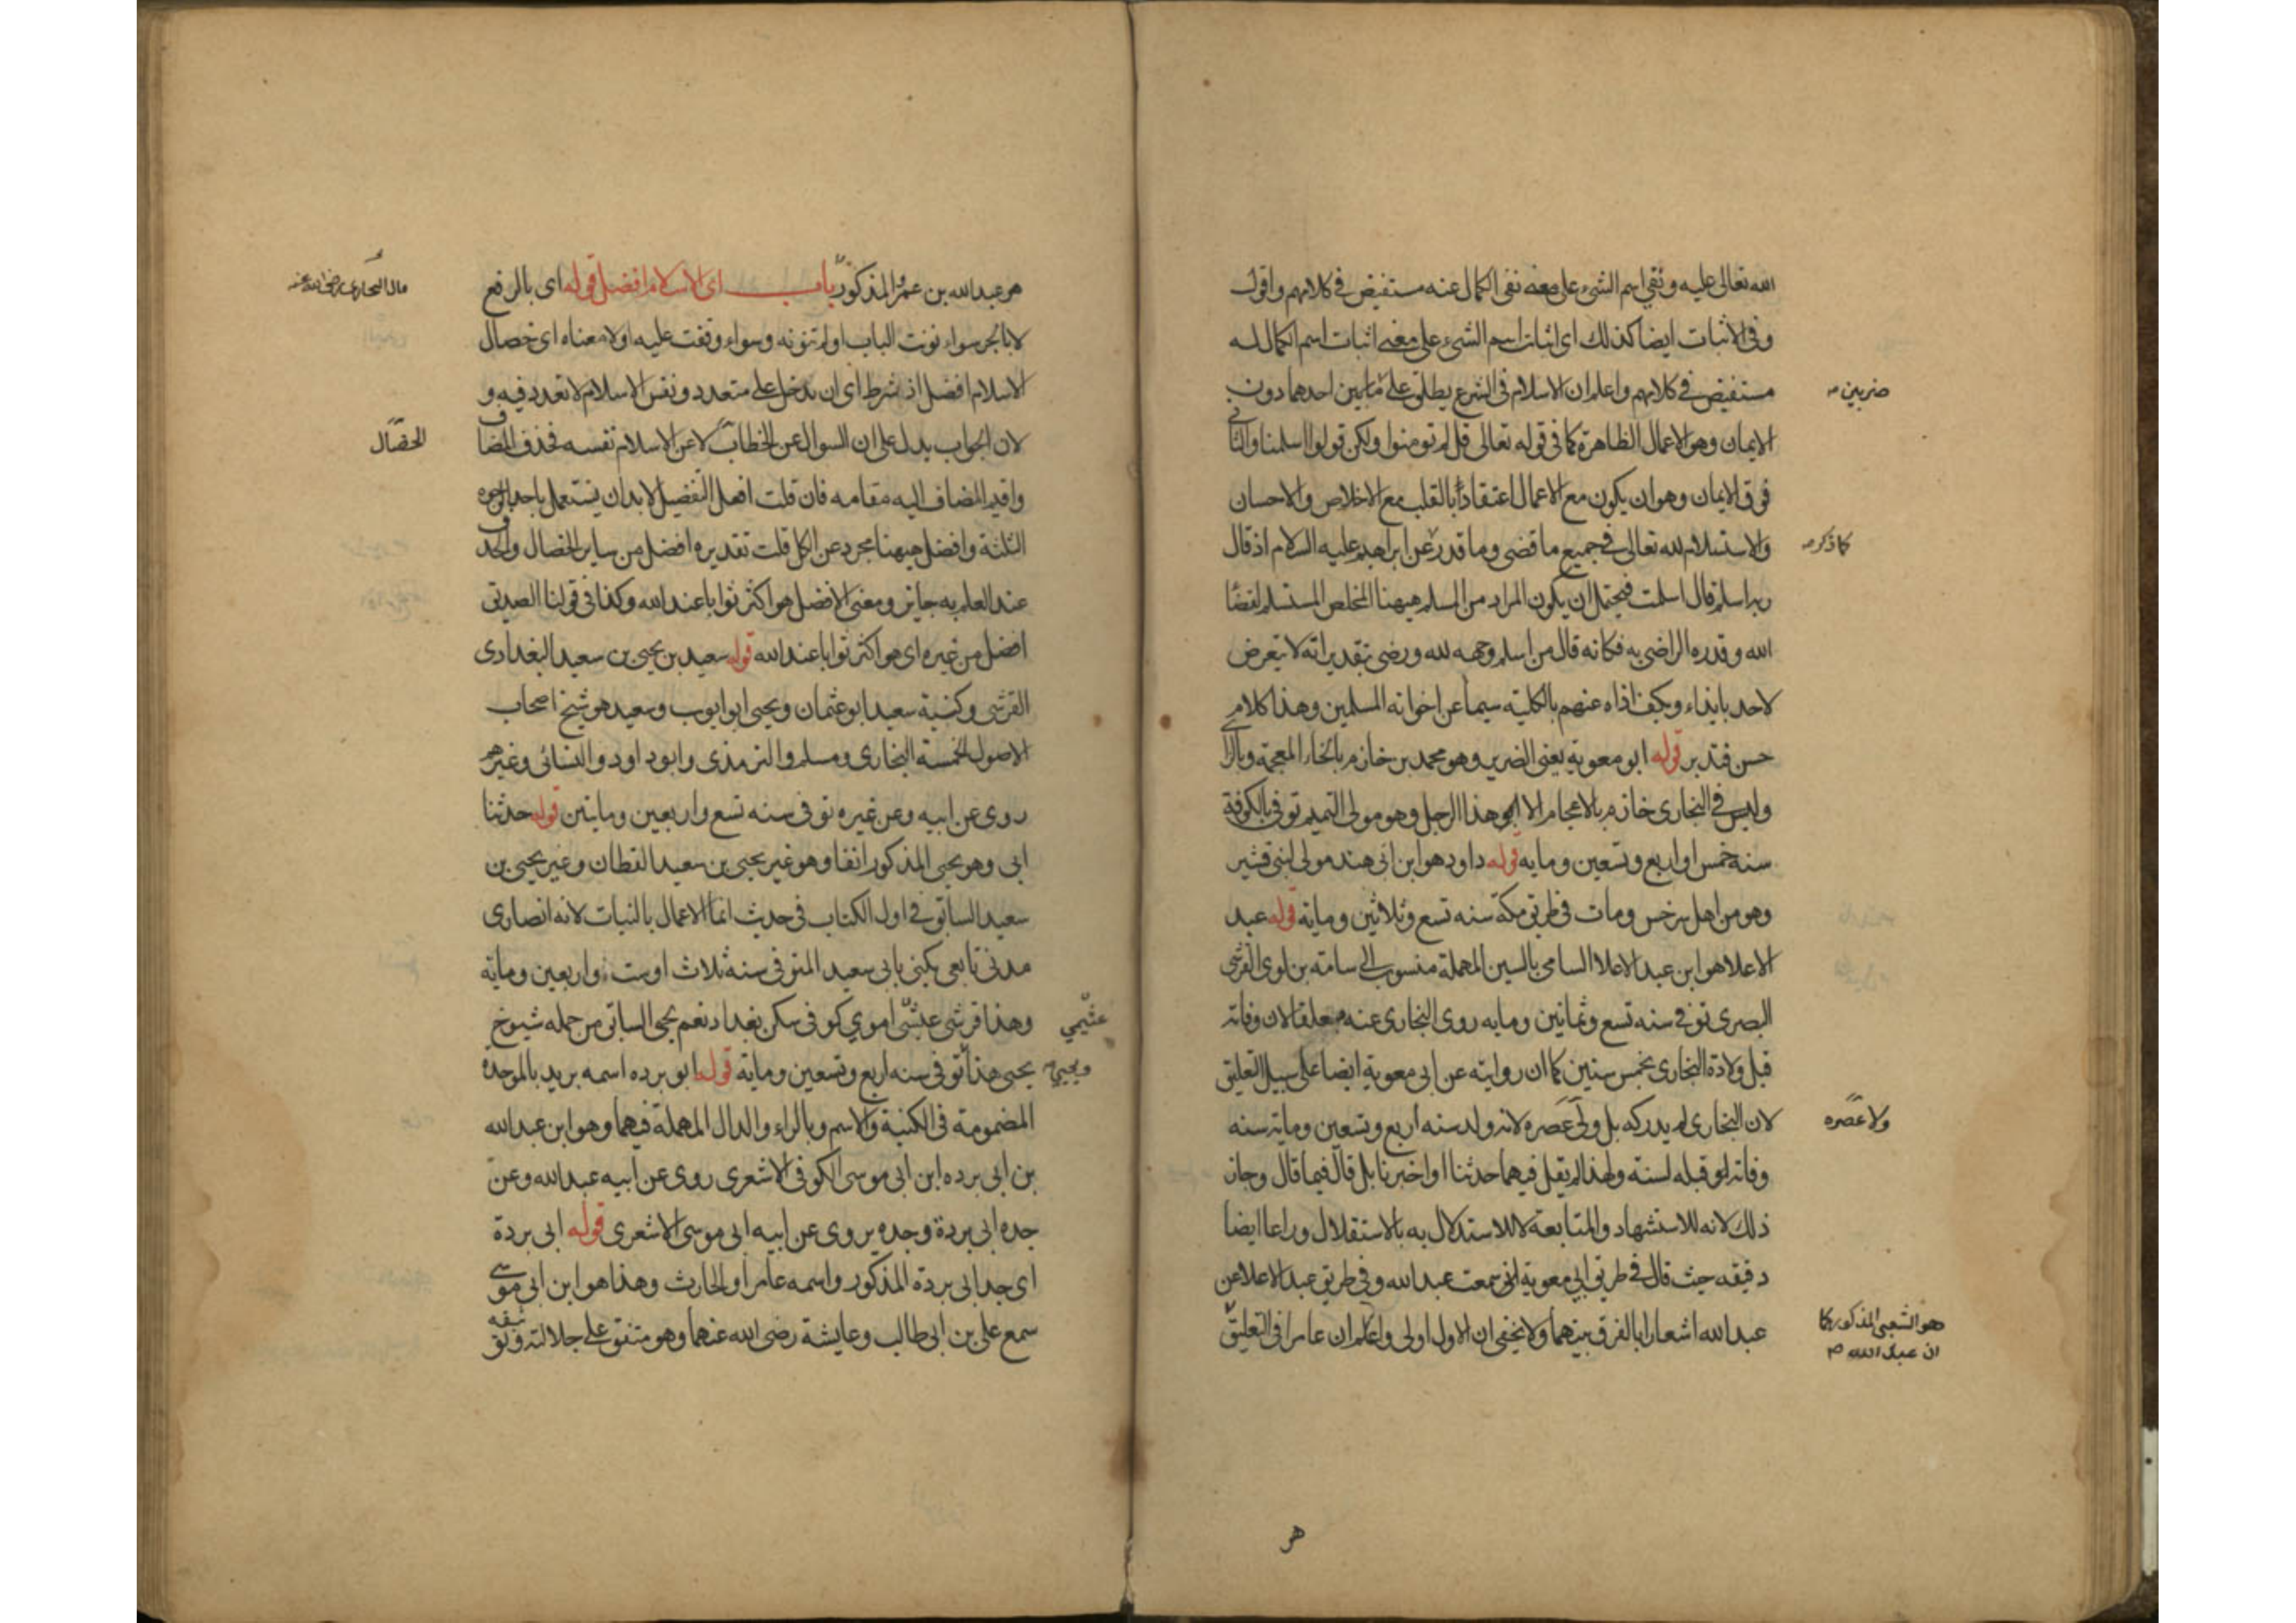 الله تعالى عليه ونفي اسم الشيء على معنى نفي الكمال عنه مستفيض في كلامهم واقول
وفي الاثبات ايضا كذلك اي اثبات اسم الشيء على معنى اثبات اسم الكمال له
مستفيض في كلامهم واعلم ان الاسلام في الشرع يطلق على مابين احدهما دون
ضربين
الايمان وهو الاعمال الظاهرة كما في قوله تعالى قل لم تومنوا ولكن قولوا اسلمنا والثاني
فوق الايمان وهو ان يكون مع الاعمال اعتقادا بالقلب مع الاخلاص والاحسان
والاستسلام لله تعالى في جميع ما قضى وما قدر عن ابراهيم عليه السلام اذ قال
كما ذكر
ربه اسلم قال اسلمت فيحتمل ان يكون المراد من المسلم هيهنا المخلص المستسلم لقضا
الله وقدره الراضي به فكانه قال من اسلم وجهه لله ورضي بتقديراته لا يتعرض
لاحد بايذاء ويكف اذاه عنهم بالكلية سيما عن اخوانه المسلمين وهذا كلام
حسن فتدبر قوله ابو معوية يعني الضرير وهو محمد بن خازم بالخاء المعجمة وبالزا
وليس في البخاري خازم بالاعجام الا ابو هذا الرجل وهو مولى التميم توفي بالكوفة
سنه خمس او اربع وتسعين ومايه قوله داود هو ابن ابي هند مولى لبني قشير
وهو من اهل سرخس ومات في طريق مكة سنه تسع وثلاثين وماية قوله عبد
الاعلا هو ابن عبد الاعلا السامي بالسين المهملة منسوب الى سامته بن لوي القرشي
البصري توفي سنه تسع وثمانين ومايه روى البخاري عنه معلقا لان وفاته
قبل ولادة البخاري بخمس سنين كما ان روايته عن ابي معوية ايضا على سبيل التعليق
لان البخاري لم يدركه بل ولى عصره لانه ولد سنه اربع وتسعين وماية سنه
ولا عصره
وفاته او قبله لسنة ولهذا لم يقل فيهما حدثنا او اخبرنا بل قال فيهما قال وجاز
ذلك لانه للاستشهاد والمتابعة لا للاستدلال به بالاستقلال وراعا ايضا
دقيقه حيث قال في طريق ابي معوية الى سمعت عبد الله وفي طريق عبد الاعلا عن
عبد الله اشعارا بالفرق بينهما ولا يخفى ان الاول اولى واعلم ان عامرا في التعليق
هو الشعبي المذكور كما
ان عبد الله
هو
هو عبد الله بن عمرو المذكور باب اي الاسلام افضل قوله اي بالرفع
مال البخاري رضي الله عنه
لا بالجر سواء نونت الباب او لم تنونه وسواء وقفت عليه او لا معناه اي خصال
الاسلام افضل اذ شرط اي ان تدخل على متعدد ونفس الاسلام لا تعدد فيه و
لان الجواب يدل على ان السوال عن الخطاب لا عن الاسلام نفسه فحذف المضاف
الخصال
واقيم المضاف اليه مقامه فان قلت افعل التفضيل لابد ان يستعمل باحد الوجوه
الثلثة وافضل هيهنا مجرد عن الكل قلت تقديره افضل من ساير الخصال والحذف
عند العلم به جايز ومعنى الافضل هو اكثر ثوابا عند الله وكذا في قولنا الصديق
افضل من غيره اي هو اكثر ثوابا عند الله قوله سعيد بن يحيى بن سعيد البغدادي
القرشي وكنية سعيد ابو عثمان ويحيى ابو ايوب وسعيد هو شيخ اصحاب
الاصول الخمسة البخاري ومسلم والترمذي وابو داود والنسائي وغيرهم
روى عن ابيه وعن غيره توفي سنه تسع واربعين ومايتين قوله حدثنا
ابي وهو يحيى المذكور انفا وهو غير يحيى بن سعيد القطان وغير يحيى بن
سعيد السابق في اول الكتاب في حديث انما الاعمال بالنيات لانه انصاري
مدني تابعي يكنى بابي سعيد المتوفى سنه ثلاث او ست واربعين وماية
وهذا قرشي عبشي اموي كوفي سكن بغداد نعم يحيى السابق من جمله شيوخ
يحيى هذا توفي سنه اربع وتسعين وماية قوله ابو برده اسمه بريد بالموحدة
ويحيى
المضمومة في الكنية والاسم وبالراء والدال المهملة فيهما وهو ابن عبد الله
بن ابي برده ابن ابي موسى الكوفي الاشعري روى عن ابيه عبد الله وعن
جده ابي بردة وجده يروى عن ابيه ابي موسى الاشعري قوله ابي بردة
اي جد ابي بردة المذكور واسمه عامر او الحارث وهذا هو ابن ابي موسى
سمع علي بن ابي طالب وعايشة رضي الله عنهما وهو متفق على جلالته وثقته